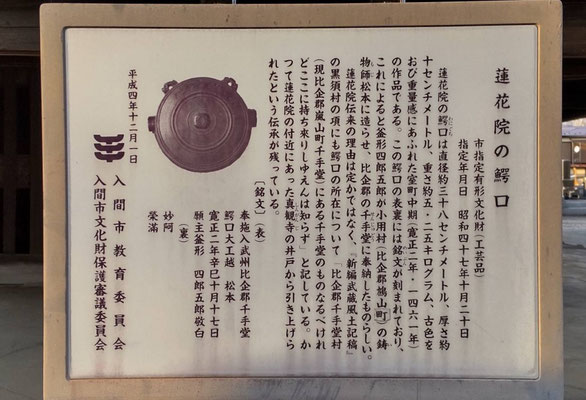 蓮花院の鰐口
市指定有形文化財(工芸品)
指定年月日 昭和四十七年十月二十日
蓮花院の鰐口は直径約三十八センチメートル、厚さ約
わにぐち
十センチメートル、重さ約五・二五キログラム、古色を
おび重量感にあふれた室町中期(寛正二年・一四六一年)
の作品である。この鰐口の表裏には銘文が刻まれており、
これによると釜形四郎五郎が小用村(比企郡鳩山町)の鋳
物師松本に造らせ、比企郡の千手堂に奉納したものらしい。
蓮花院伝来の理由は定かではなく、『新編武蔵風土記稿』
の黒須村の項にも鰐口の所在について「比企郡千手堂村
(現比企郡嵐山町千手堂)にある千手堂のものなるべけれ
どここに持ち来りしゆえんは知らず」と記している。か
つて蓮花院の付近にあった真観寺の井戸から引き上げら
れたという伝承が残っている。
〔銘文〕(表)
奉施入武州比企郡千手堂
鰐口大工越 松本
寛正二年辛巳十月十七日
願主釜形 四郎五郎敬白
(裏)
妙阿
榮満
平成四年十二月一日
入間市教育委員会
入間市文化財保護審議委員会